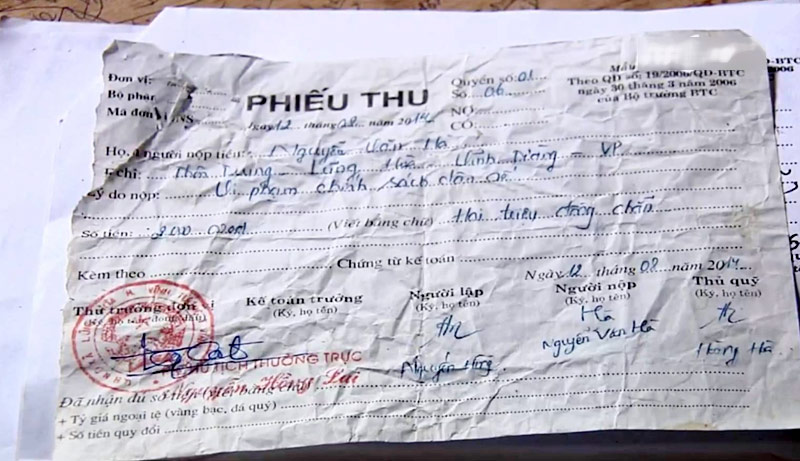 Đơn vị:
Bộ phận
Mã đơn
PHIẾU THU
Quyển số: 01
Số 06
NỢ
CÓ
Mẫu
Theo QĐ số: 19/2006/QĐ-BTC
ngày 30 tháng 3 năm 2006
của Bộ trưởng BTC
Ngày 12 tháng 08 năm 2014
Họ, người nộp tiền: Nguyễn Văn Hà
chỉ: Thôn Trung - Lũng Hòa - Vĩnh Tường - VP
Lý do nộp: Vi phạm chính sách dân số
Số tiền: (Viết bằng chữ) Hai triệu đồng chẵn
Kèm theo Chứng từ kế toán
Ngày 12 tháng 08 năm 2014
Thủ trưởng đơn vị
(Ký, họ tên, đóng dấu)
Kế toán trưởng
(Ký, họ tên)
Người lập
(Ký, họ tên)
Người nộp
(Ký, họ tên)
Thủ quỹ
(Ký, họ tên)
Hà
Nguyễn Văn Hà
Nguyễn
Hồng Hà
CHỦ TỊCH THƯỜNG TRỰC
Nguyễn Hồng Lai
Đã nhận đủ số tiền
+ Tỷ giá ngoại tệ (vàng bạc, đá quý)
+ Số tiền quy đổi